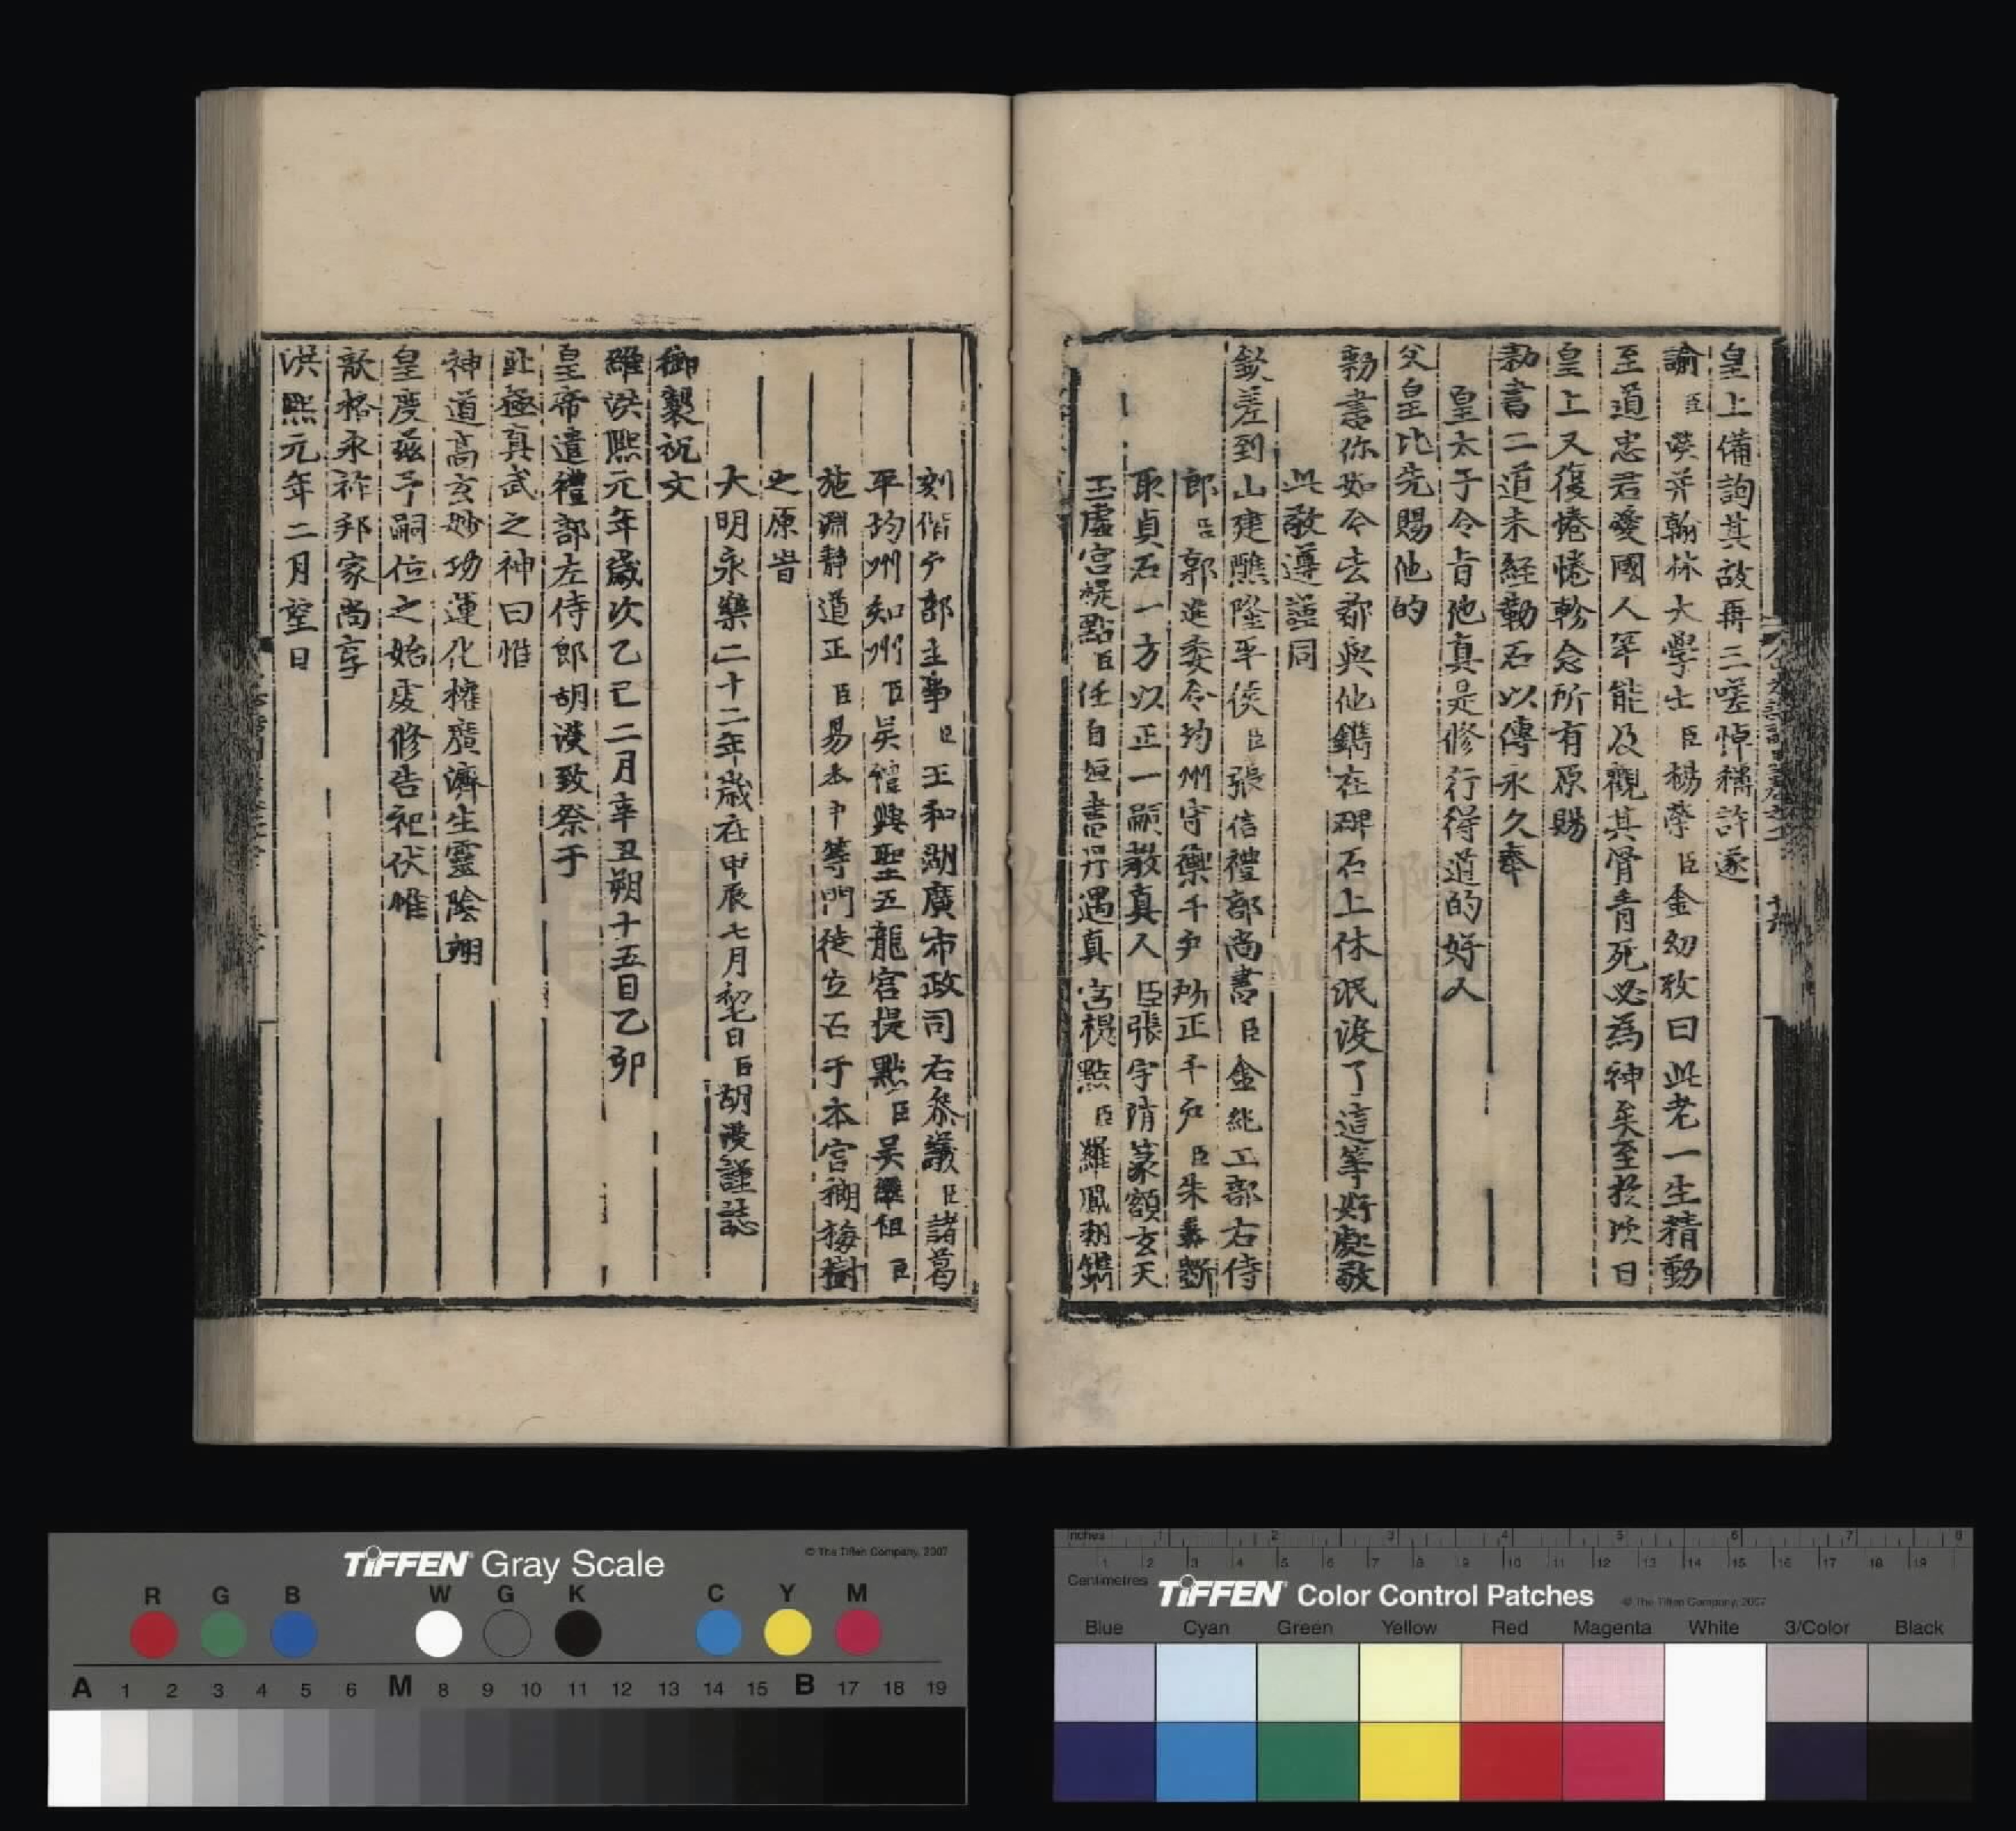 皇上備詢其故再三嗟悼稱許遂
諭臣濙并翰林大學士臣楊榮臣金幼孜曰此老一生精勤
至道忠君愛國人罕能及觀其骨青死必為神矣至於次日
皇上又復惓惓軫念所有原賜
勑書二道未經勒石以傳永久奉
皇太子令旨他真是修行得道的好人
父皇比先賜他的
勑書你如今去都與他鐫在碑石上休泯沒了這等好處敬
此敬遵謹同
欽差到山建醮隆平侯臣張信禮部尚書臣金純工部右侍
郎臣郭進委令均州守禦千户所正千户臣朱彞斵
取貞石一方以正一嗣教真人臣張宇清篆額玄天
玉虛宮提點臣任自垣書丹遇真宮提點臣羅鳳翔鐫
刻偕户部主事臣王和湖廣布政司右叅議臣諸葛
平均州知州臣吳禮興聖五龍宮提點臣吳繼佀臣
施淵靜道正臣易本中等門徒立石于本宮榔梅樹
之原昔
大明永樂二十二年歲在甲辰七月初七日臣胡濙謹誌
御製祝文
維洪熙元年歲次乙巳二月辛丑朔十五日乙卯
皇帝遣禮部左侍郎胡濙致祭于
北極真武之神曰惟
神道高玄妙功運化權廣濟生靈陰翊
皇度茲予嗣位之始虔修告祀伏惟
歆格永祚邦家尚享
洪熙元年二月望日
TIFFEN Gray Scale
© The Tiffen Company, 2007
R G B W G K C Y M
A 1 2 3 4 5 6 M 8 9 10 11 12 13 14 15 B 17 18 19
Inches 1 2 3 4 5 6 7 8
1 2 3 4 5 6 7 8 9 10 11 12 13 14 15 16 17 18 19
Centimetres
TIFFEN Color Control Patches
© The Tiffen Company, 2007
Blue Cyan Green Yellow Red Magenta White 3/Color Black